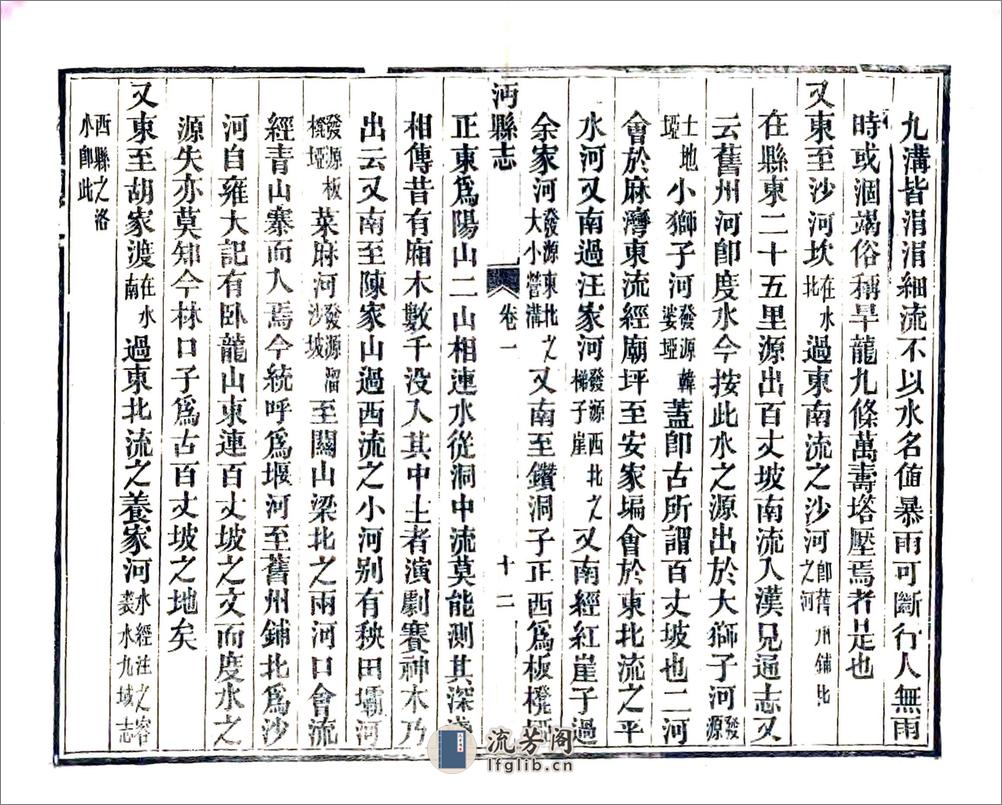 九溝皆涓涓細流不以水名値暴雨可斷行人無雨
時或涸竭俗稱旱龍九條萬壽塔壓焉者是也
又東至沙河坎在水北過東南流之沙河卽舊州鋪北之河
在縣東二十五里源出百丈坡南流入漢見通志又
云舊州河卽度水今按此水之源出於大獅子河發源
土地埡小獅子河發源韓婆埡蓋卽古所謂百丈坡也二河
會於麻灣東流經廟坪至安家塥會於東北流之平
水河又南過汪家河發源西北之梯子崖又南經紅崖子過
余家河發源東北之大小營溝又南至鑽洞子正西爲板櫈埡
沔縣志
卷一
十二
正東爲陽山二山相連水從洞中流莫能測其深淺
相傳昔有廂木數千没入其中土者演劇賽神木乃
出云又南至陳家山過西流之小河别有秧田壩河
發源板櫈埡菜麻河發源溜沙坡至關山梁北之兩河口會流
經青山寨而入焉今統呼爲堰河至舊州鋪北爲沙
河自雍大記有卧龍山東連百丈坡之文而度水之
源失亦莫知今林口子爲古百丈坡之地矣
又東至胡家渡在水南過東北流之養家河水經注之容裘水九域志
西縣之洛水卽此
流芳阁
lfglib.cn